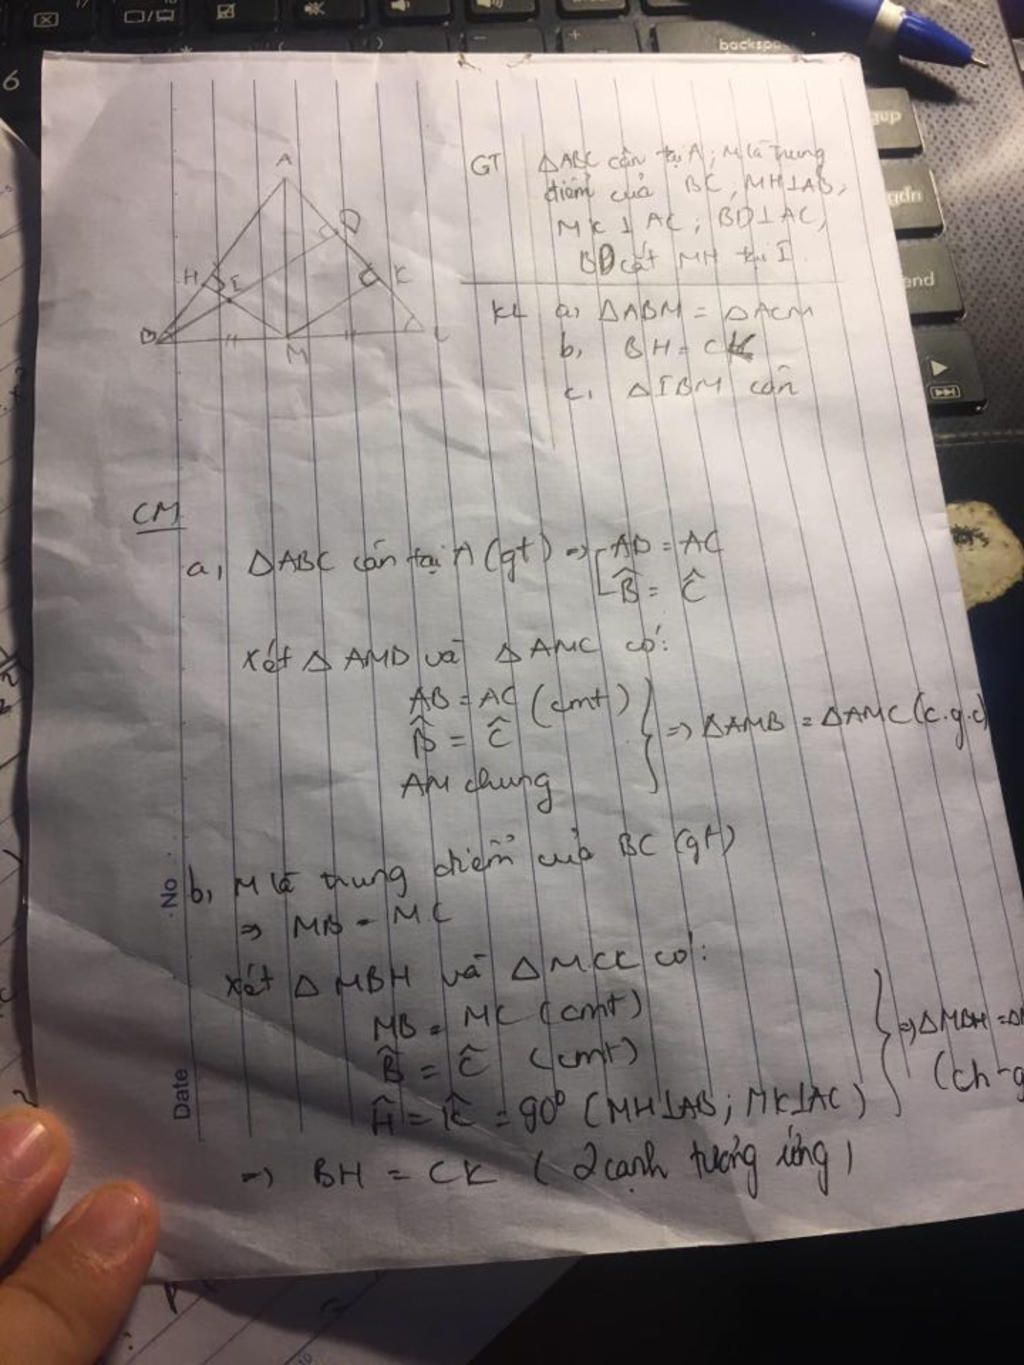 backspa
6
gup
gdn
end
A
D
H
I
K
B
M
C
GT ΔABC cân tại A; M là trung
điểm của BC, MH⊥AB,
MK ⊥ AC; BD⊥AC,
BD cắt MH tại I.
KL a, ΔABM = ΔACM
b, BH = CK
c, ΔIBM cân
CM
a, ΔABC cân tại A (gt) => AB = AC
B̂ = Ĉ
Xét Δ AMB và Δ AMC có:
AB = AC (cmt)
B̂ = Ĉ
AM chung
=> ΔAMB = ΔAMC (c.g.c)
No
b, M là trung điểm của BC (gt)
=> MB = MC
Xét Δ MBH và Δ MCK có:
MB = MC (cmt)
B̂ = Ĉ (cmt)
Ĥ = K̂ = 90° (MH⊥AB; MK⊥AC)
=> ΔMBH = Δ
(ch-g
Date
=> BH = CK (2 cạnh tương ứng)